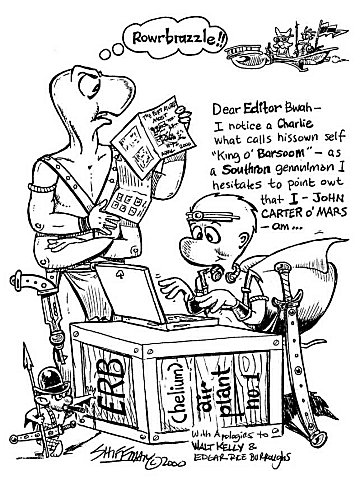 Rowrbrazzle!!
Dear Editor Bwah-
I notice a Charlie
what calls hissown self
"King o' Barsoom" - as
a Southron gennulmon I
hesitates to point out
that I - JOHN
CARTER o' MARS
-am...
ERB
(helium)
air
plant
no.1
With Apologies to
WALT KELLY &
EDGAR RICE BURROUGHS
SHIFFMAN © 2000